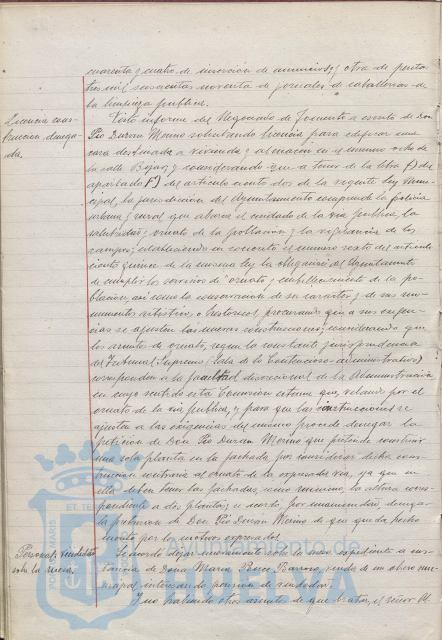 cuarenta y cuatro de inserción de anuncios; y otra de pesetas
tres mil seiscientas noventa de jornales de caballerías de
la limpieza pública.
Licencia cons-
trucción denega-
da.
Visto informe del Negociado de Fomento a escrito de Don
Pío Durán Merino solicitando licencia para edificar una
casa destinada a vivienda y almacén en el número ocho de
la calle Bejar; y considerando que a tenor de la letra f) del
apartado 1º) del artículo ciento dos de la vigente Ley Muni-
cipal, la jurisdicción del Ayuntamiento comprende la policía
urbana y rural que abarca el cuidado de la vía pública, la
salubridad y ornato de la población y la vigilancia de los
campos; estableciendo en concreto el número sexto del artículo
ciento quince de la misma ley la obligación del Ayuntamiento
de cumplir los servicios de ornato y embellecimiento de la po-
blación, así como la conservación de su carácter y de sus mo-
numentos artísticos o históricos, procurando que a sus exigen-
cias se ajusten las nuevas construcciones; considerando que
los asuntos de ornato, según la constante jurisprudencia
del Tribunal Supremo (Sala de lo Contencioso administrativo)
corresponden a la facultad discrecional de la Administración
en cuyo sentido esta Comisión estima que, velando por el
ornato de la vía pública, y para que las construcciones se
ajusten a las exigencias del mismo procede denegar la
petición de Don Pío Durán Merino que pretende construir
una sola planta en la fachada, por considerar dicha cons-
trucción contraria al ornato de la expresada vía, ya que en
ella deben tener las fachadas, como mínimo, la altura corres-
pondiente a dos plantas; se acordó por unanimidad denegar
la petición de Don Pío Durán Merino de que queda hecho
mérito por los motivos expresados.
Personal, viudedad
sobre la mesa.
Se acordó dejar nuevamente sobre la mesa expediente a ins-
tancia de Doña María Ponce Barroso, viuda de un obrero mu-
nicipal interesando pensión de viudedad.
Y no habiendo otros asuntos de que tratar, el señor Al
Ayuntamiento de
HUELVA